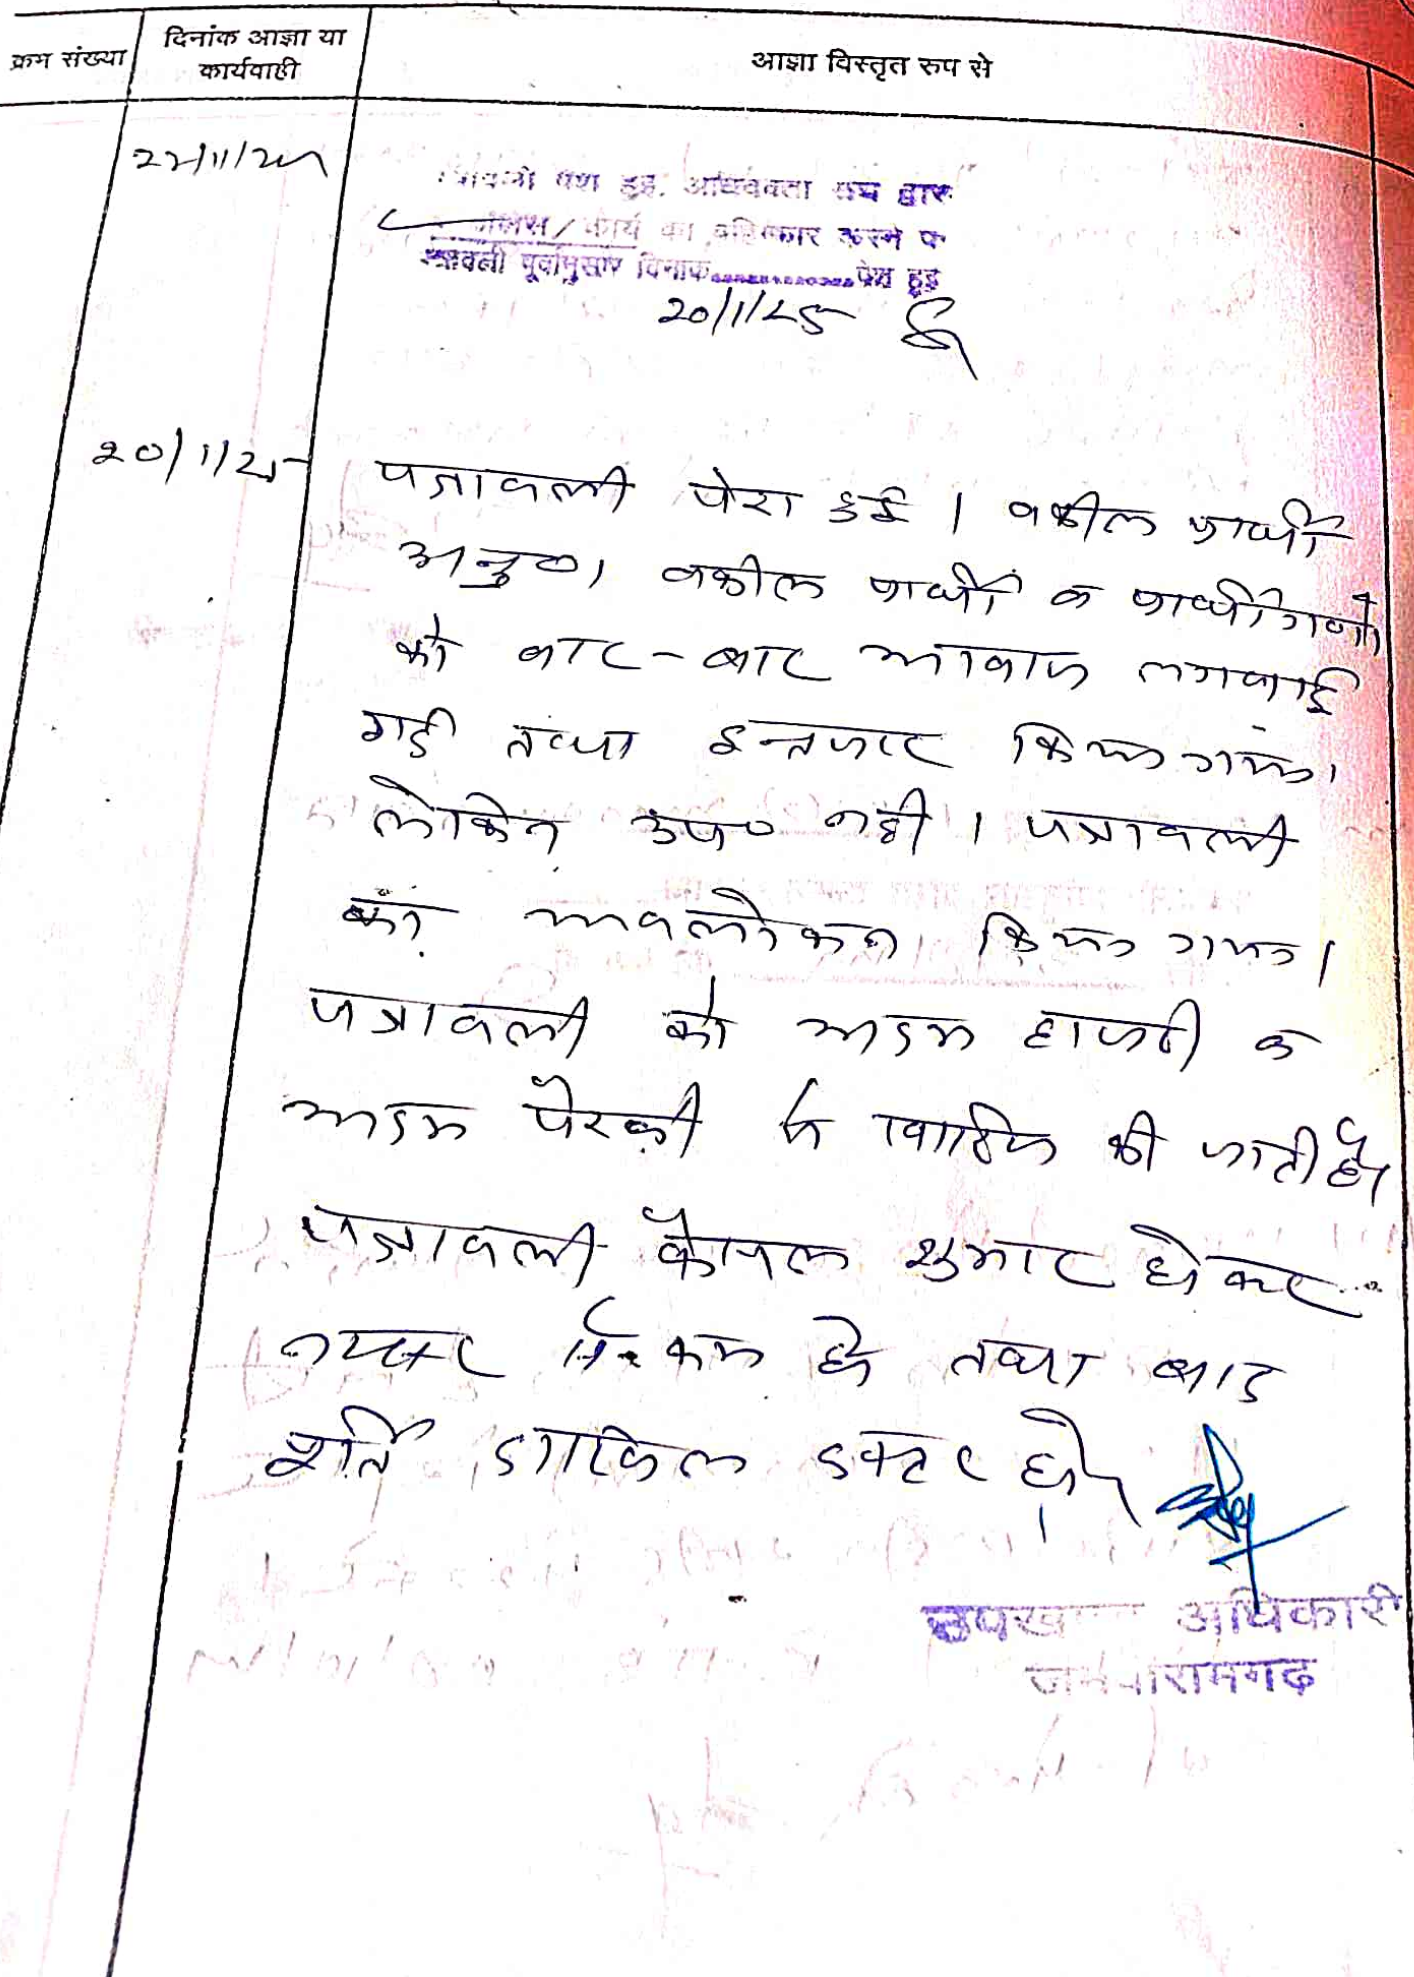 क्रम संख्या
दिनांक आज्ञा या
कार्यवाही
आज्ञा विस्तृत रुप से
पेश हुई. अधिवक्ता संघ द्वारा
कार्य का बहिष्कार करने
पूर्वानुसार दिनांक..............पेश हुई
20/1/25
20/1/25
पत्रावली पेश हुई । वकील प्रार्थी
अनु० । वकील प्रार्थी व प्रार्थीगणो
को बार-बार आवाज लगवाई
गई तथा इन्तजार किया गया ।
लेकिन उप० नही । पत्रावली
का अवलोकन किया गया ।
पत्रावली को अदम हाजरी व
अदम पैरवी में खारिज की जाती है।
पत्रावली फैसल शुमार होकर
नम्बर से कम हो तथा बाद
दाखिल दफ्तर हो ।
उपखण्ड अधिकारी
जमवारामगढ़